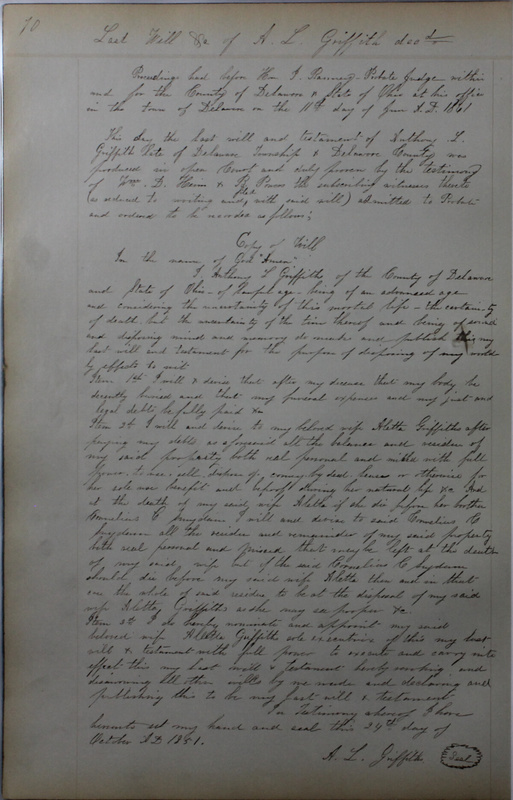 70
Last Will &c of A. L. Griffith decd
Proceedings had before Wm P. Probate Judge within
and for the County of Delaware & State of Ohio at his office
in the town of Delaware on the 11th day of A.D. 1861
This day the last will and testament of Anthony L.
Griffith late of Delaware Township & Delaware County was
produced in open Court and duly proven by the testimony
of Wm. D. Heim & the subscribing witnesses thereto
(as reduced to writing and, with said will) admitted to Probate
and ordered to be recorded as follows;
Copy of Will
In the name of God "Amen"
I, Anthony L Griffith, of the County of Delaware
and State of Ohio - of age - being of an advanced age
and considering the uncertainty of this mortal life - the certainty
of death, but the uncertainty of the time thereof and being of sound
and disposing mind and memory do make and publish this my
last will and testament for the purpose of disposing of my world
ly effects to wit
Item 1st I will & devise that after my decease that my body be
decently buried and that my funeral expenses and my just and
legal debts be fully paid &c
Item 2d I will and devise to my beloved wife Aletta Griffiths after
paying my debts as aforesaid all the balance and residue of
my said property both real personal and mixed with full
power to use, sell, dispose of, convey by deed lease or otherwise for
her sole use benefit and behoof during her natural life &c And
at the death of my said wife Aletta if she die before her brother
Cornelius C Suydam I will and devise to said Cornelius C
Suydam all the residue and remainder of my said property
both real personal and mixed that may be left at the death
of my said wife but if the said Cornelius C Suydam
should die before my said wife Aletta then and in that
case the whole of said residue to be at the disposal of my said
wife Aletta Griffiths as she may see proper &c.
Item 3d I do hereby nominate and appoint my said
beloved wife Aletta Griffith sole executrix of this my last
will & testament with full power to execute and carry into
effect this my last will & testament hereby revoking and
disannulling all other wills by me made and declaring and
publishing this to be my last will & testament
In Testimony whereof I have
hereunto set my hand and seal this 24th day of
October A.D. 1851.
A. L. Griffith. Seal